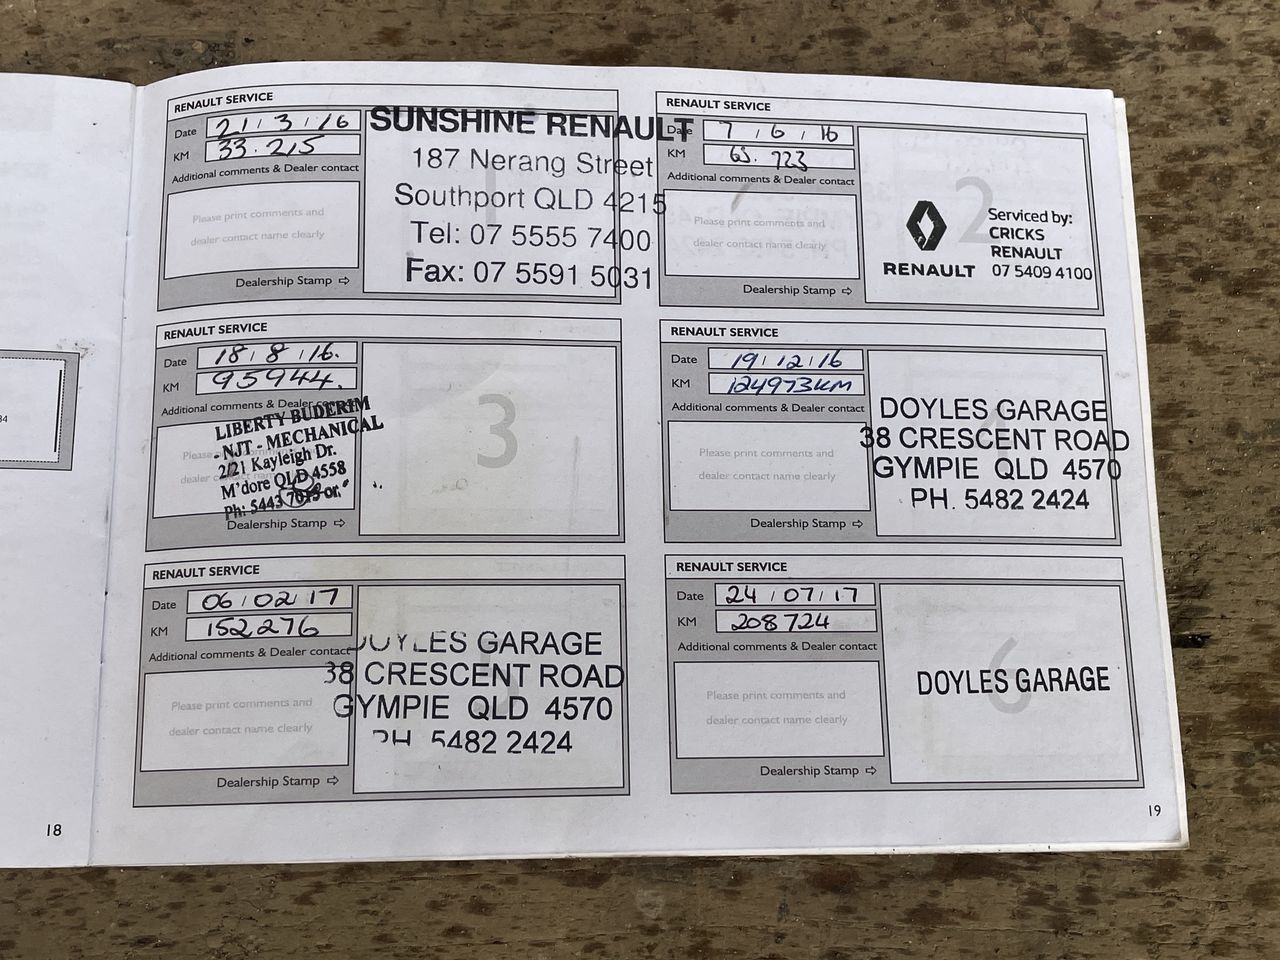 RENAULT SERVICE
Date 21 / 3 / 16
KM 33.215
Additional comments & Dealer contact
Please print comments and
dealer contact name clearly
Dealership Stamp ⇨
SUNSHINE RENAULT
187 Nerang Street
Southport QLD 4215
Tel: 07 5555 7400
Fax: 07 5591 5031
RENAULT SERVICE
Date 7 / 6 / 16
KM 65.723
Additional comments & Dealer contact
Please print comments and
dealer contact name clearly
Dealership Stamp ⇨
2
RENAULT
Serviced by:
CRICKS
RENAULT
07 5409 4100
RENAULT SERVICE
Date 18 / 8 / 16.
KM 95944.
Additional comments & Dealer contact
LIBERTY BUDERIM
- NJT - MECHANICAL
2/21 Kayleigh Dr.
M'dore QLD 4558
Ph: 5443
Dealership Stamp ⇨
3
RENAULT SERVICE
Date 19 / 12 / 16
KM 124973KM
Additional comments & Dealer contact
Please print comments and
dealer contact name clearly
Dealership Stamp ⇨
DOYLES GARAGE
38 CRESCENT ROAD
GYMPIE QLD 4570
PH. 5482 2424
RENAULT SERVICE
Date 06 / 02 / 17
KM 152,276
Additional comments & Dealer contact
Please print comments and
dealer contact name clearly
Dealership Stamp ⇨
DOYLES GARAGE
38 CRESCENT ROAD
GYMPIE QLD 4570
PH. 5482 2424
RENAULT SERVICE
Date 24 / 07 / 17
KM 208724
Additional comments & Dealer contact
Please print comments and
dealer contact name clearly
Dealership Stamp ⇨
6
DOYLES GARAGE
18
19